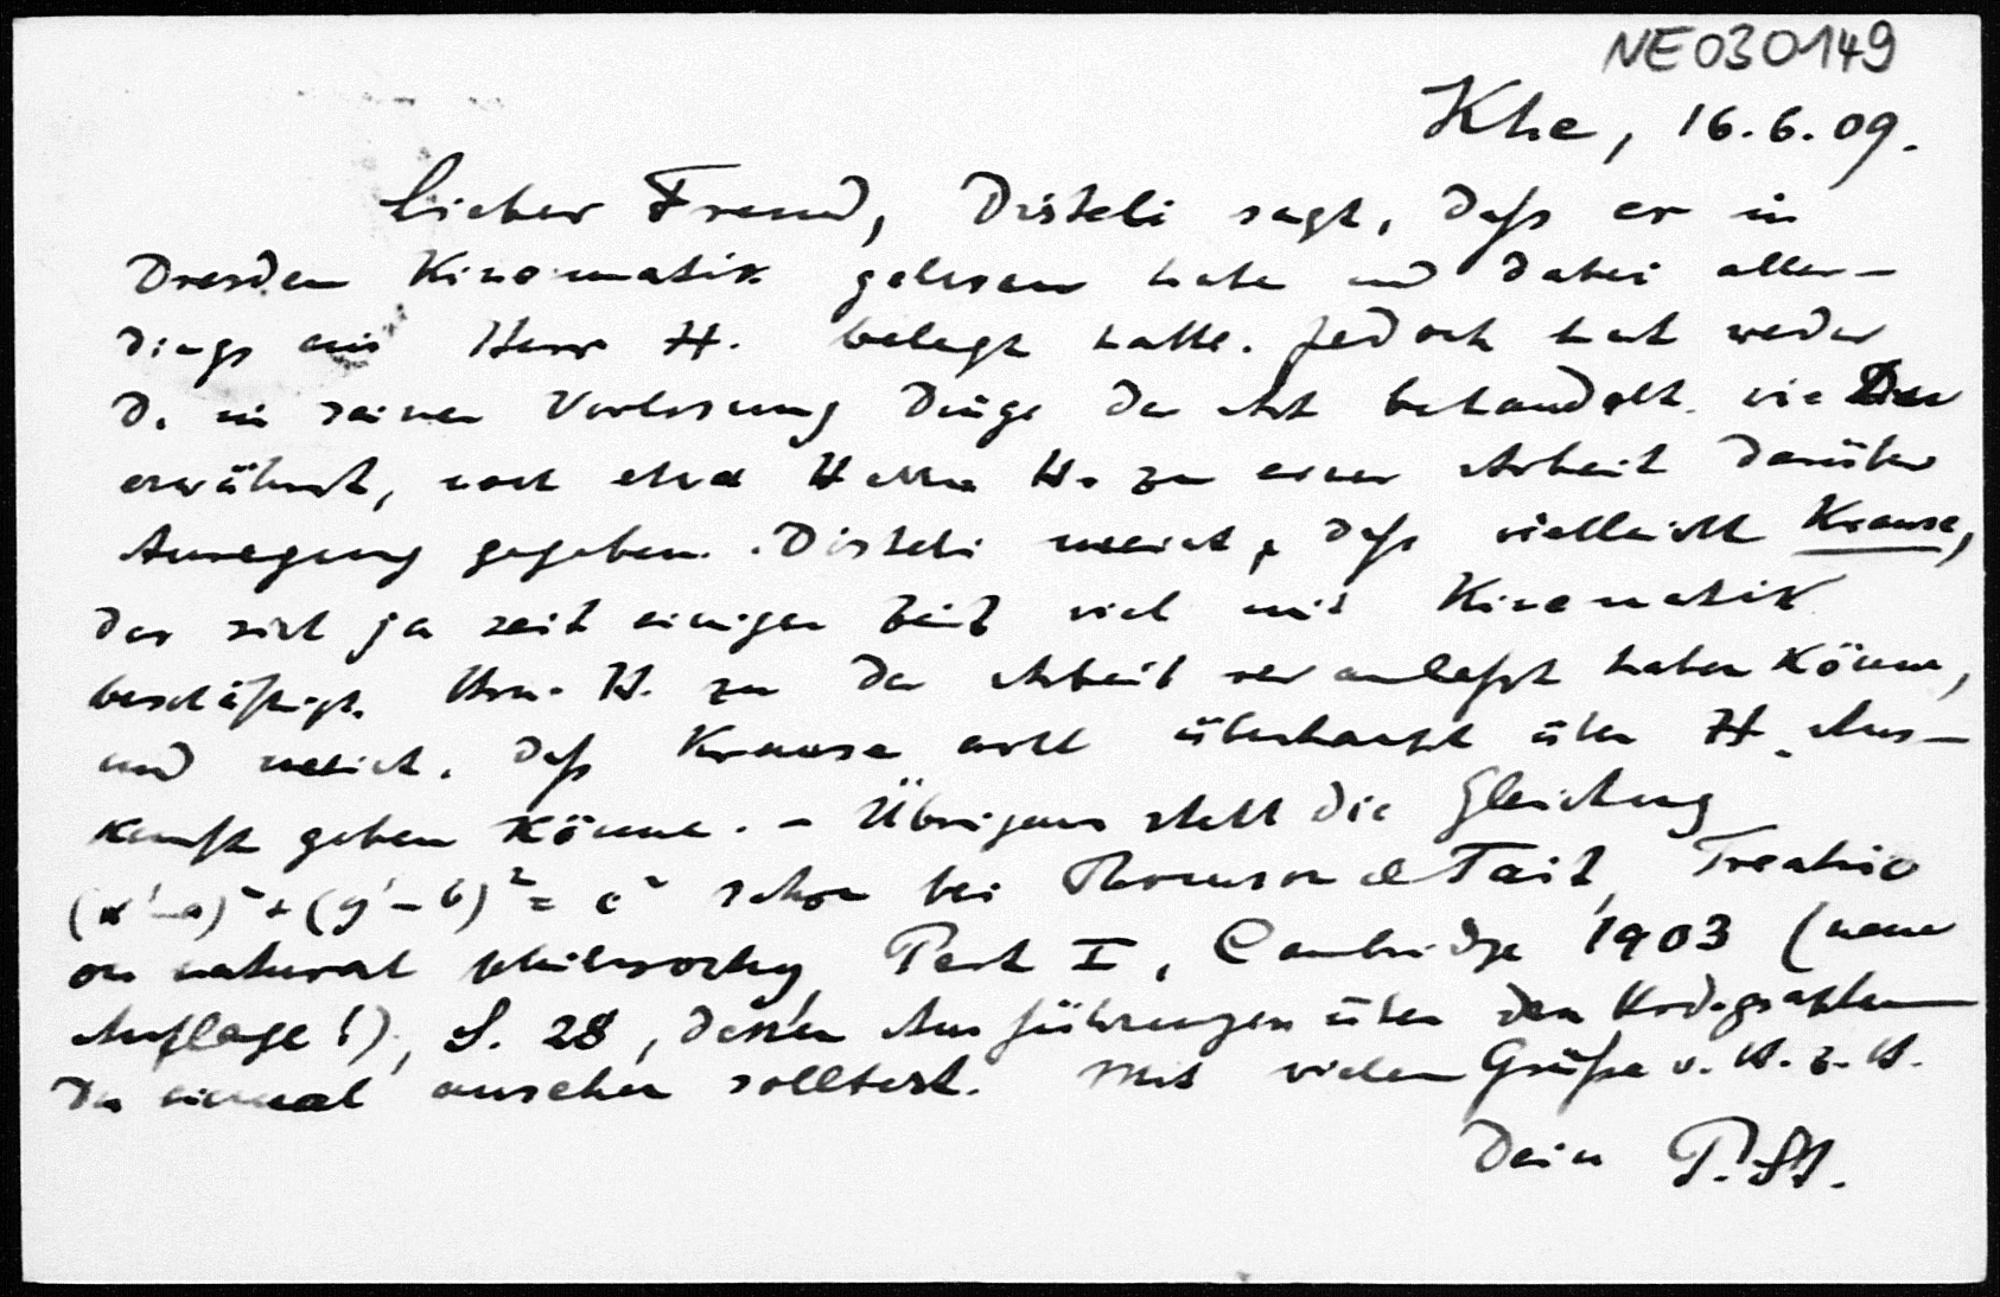 NE030149
Khe, 16.6.09.
Lieber Freund, Disteli sagt, daß er in
Dresden Kinematik gelesen habe und dabei aller-
dings ein Herr H. belegt hatte. Jedoch hat weder
D. in seiner Vorlesung Dinge der Art behandelt wie Du
erwähnst, noch etwa Herrn H. zu einer Arbeit darüber
Anregung gegeben. Disteli meint, daß vielleicht Krause,
der sich ja seit einiger Zeit viel mit Kinematik
beschäftigt, Hrn. H. zu der Arbeit veranlaßt haben könne,
und meint, daß Krause wohl überhaupt über H. Aus-
kunft geben könne. – Übrigens steht die Gleichung
(x'-a)²+(y'-b)²=c² schon bei Thomson & Tait, Treatise
on natural philosophy, Part I, Cambridge 1903 (neue
Auflage!), S. 28, dessen Ausführungen über den Hodographen
Du einmal ansehen solltest. Mit vielen Grüßen v. H. z. H.
Dein P. St.